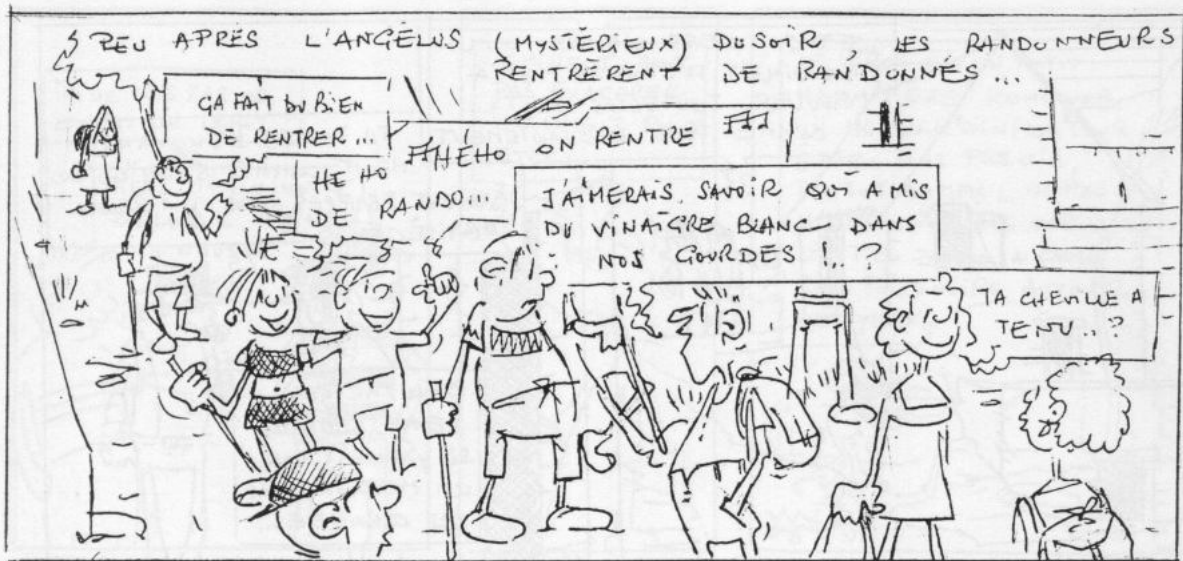 PEU APRÈS L'ANGÉLUS (MYSTÉRIEUX) DU SOIR LES RANDONNEURS
RENTRÈRENT DE RANDONNÉS...
ÇA FAIT DU BIEN
DE RENTRER...
HÉHO ON RENTRE
HÉ HO
DE RANDO...
J'AIMERAIS SAVOIR QUI A MIS
DU VINAIGRE BLANC DANS
NOS GOURDES ?
TA CHEVILLE A
TENU ?